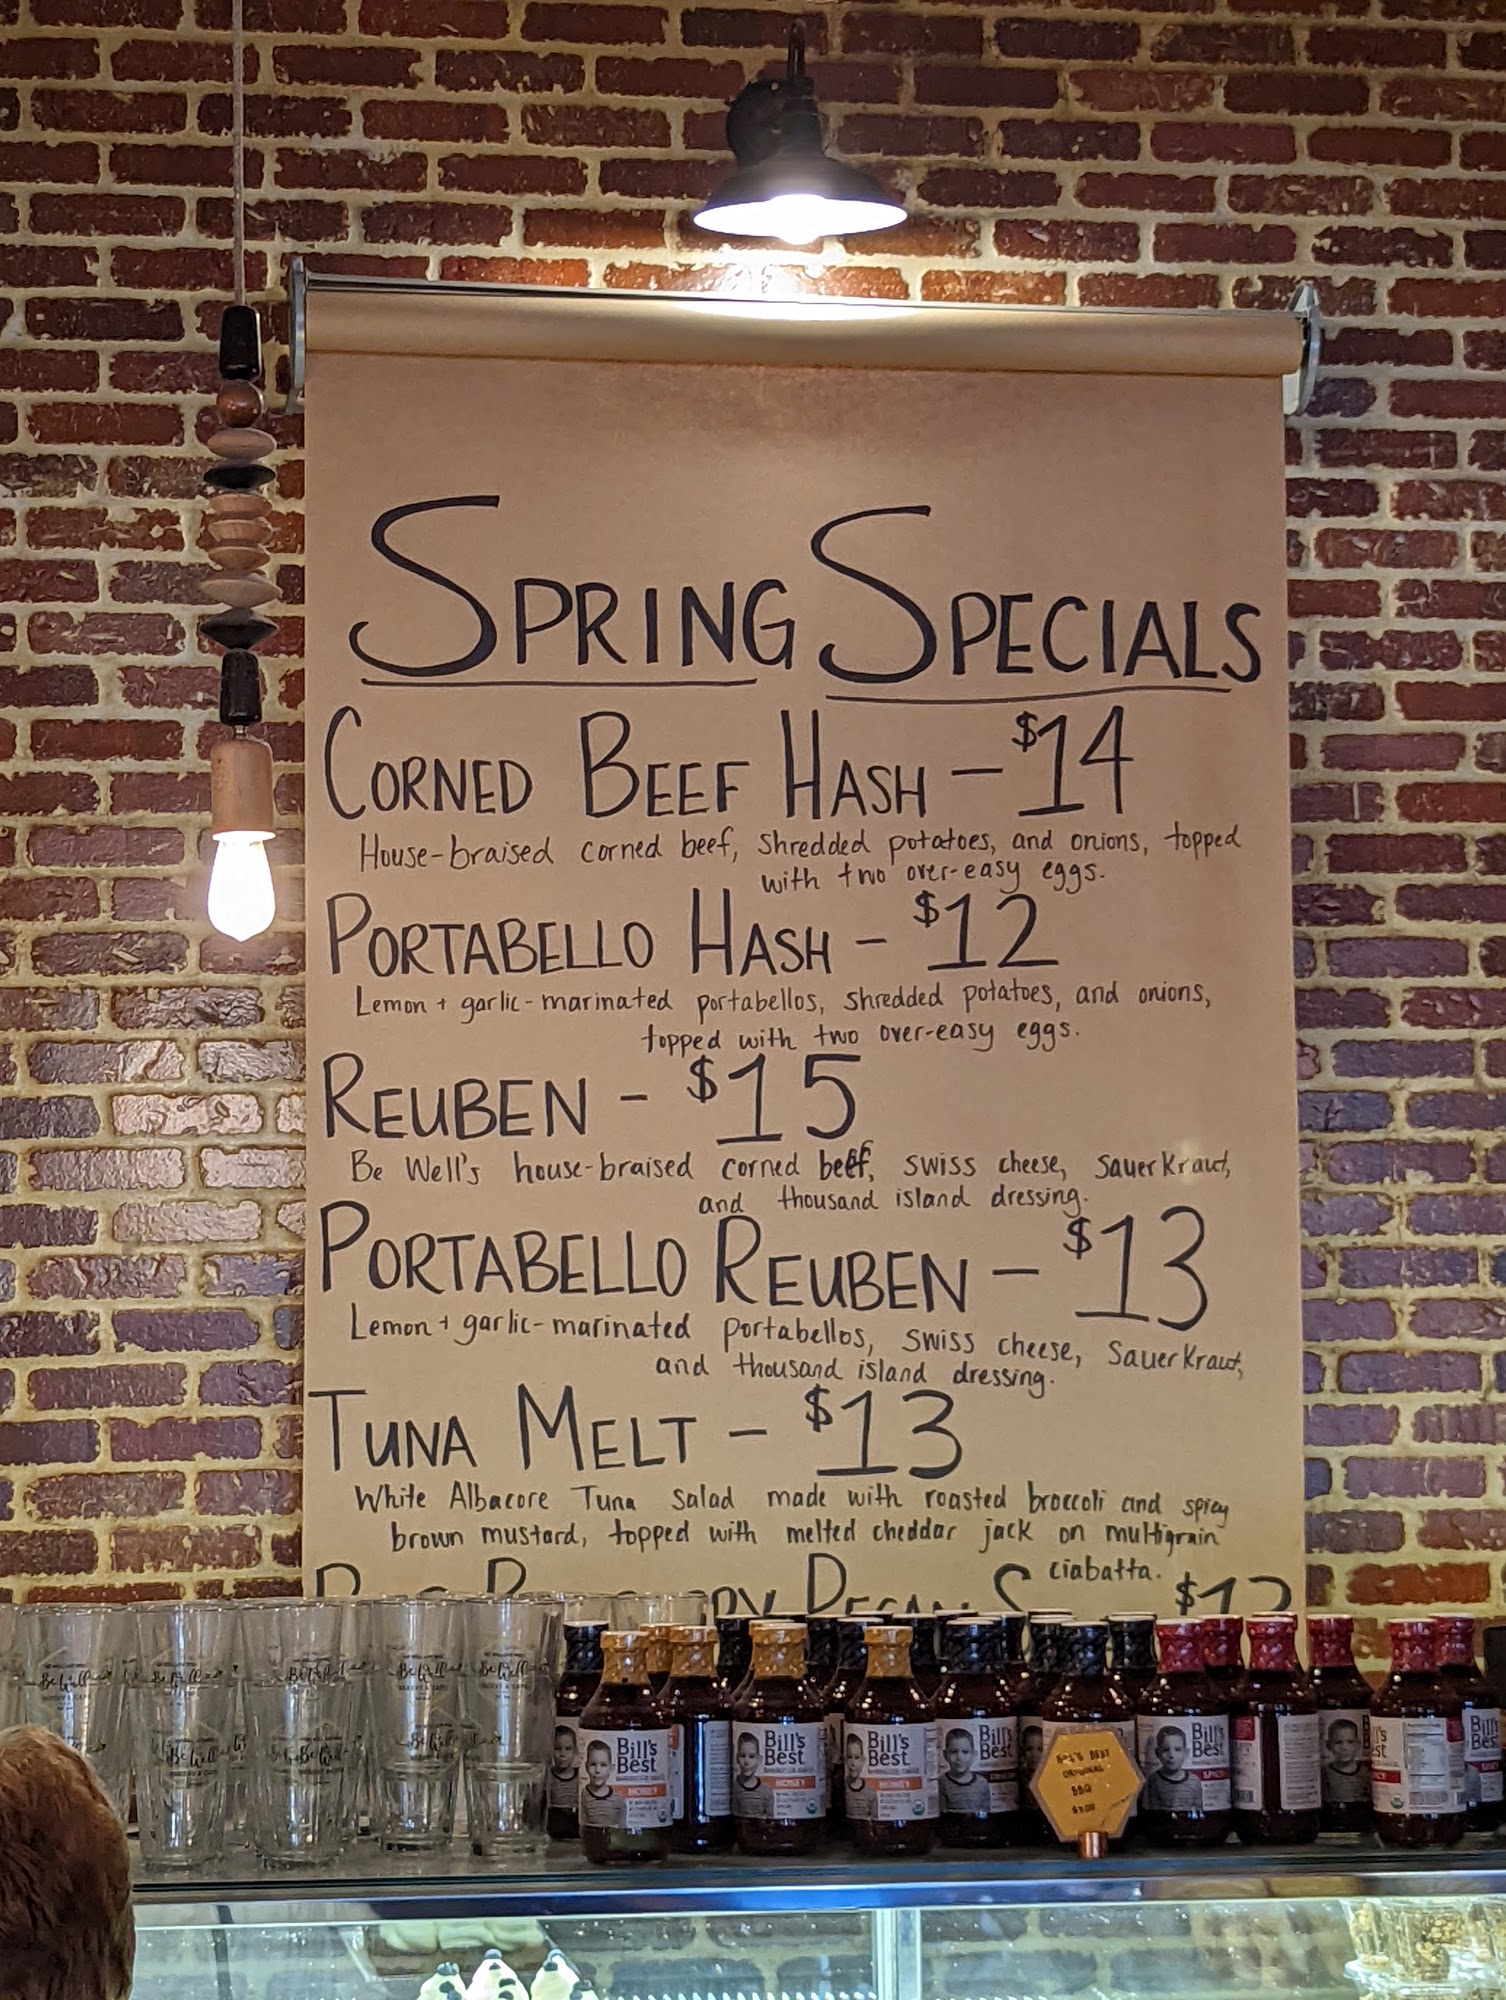 SPRING SPECIALS
CORNED BEEF HASH - $14
House-braised corned beef, shredded potatoes, and onions, topped
with two over-easy eggs.
PORTABELLO HASH - $12
Lemon + garlic-marinated portabellos, shredded potatoes, and onions,
topped with two over-easy eggs.
REUBEN - $15
Be Well's house-braised corned beef, swiss cheese, Sauerkraut,
and thousand island dressing.
PORTABELLO REUBEN - $13
Lemon + garlic-marinated portabellos, swiss cheese, Sauerkraut,
and thousand island dressing.
TUNA MELT - $13
White Albacore Tuna salad made with roasted broccoli and spicy
brown mustard, topped with melted cheddar jack on multigrain
ciabatta.
PECAN
Be Well
Be Well
Be Well
Be Well
Be Well
Bill's Best
HONEY
Bill's Best
HONEY
Bill's Best
HONEY
Bill's Best
Bill's Best
BILL'S BEST
ORIGINAL
BBQ